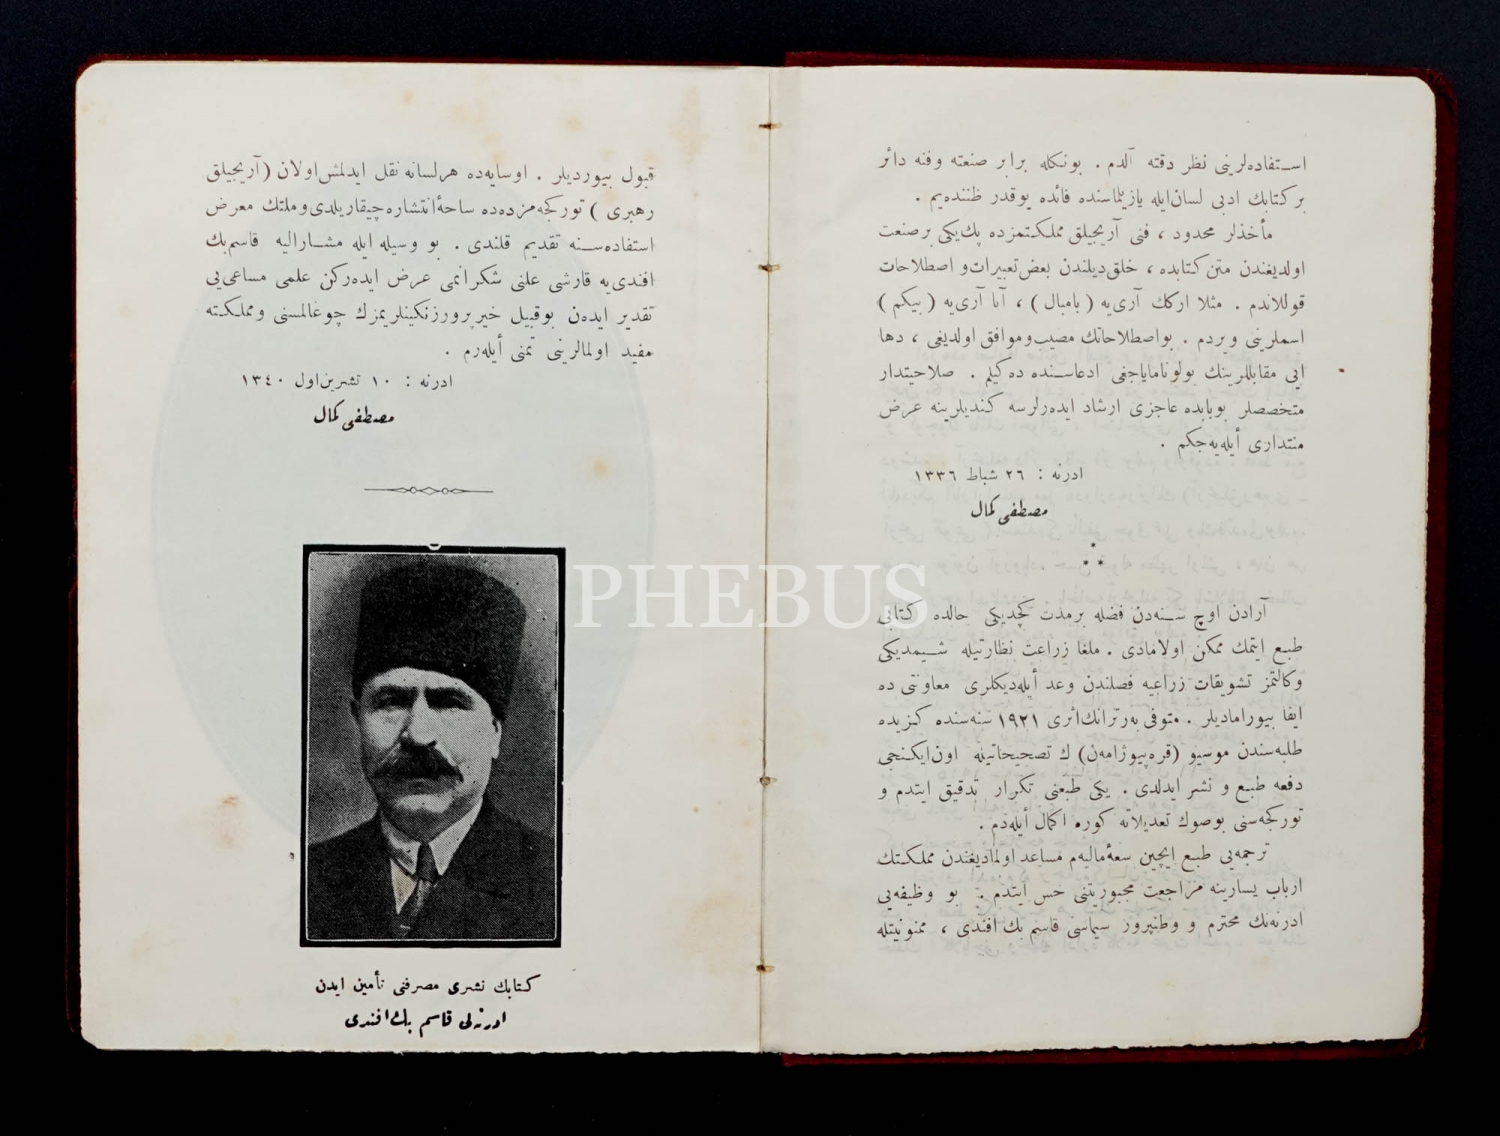 استفاده‌لرینی نظر دقته آلدم . بونكله برابر صنعته وفنه دائر
بر كتابك ادبی لسان ایله یازیلماسنده فائده یوقدر ظننده‌یم .
مأخذلر محدود ، فنی آریجیلق مملكتمزده پك یكی بر صنعت
اولدیغندن متن كتابده ، خلق دیلندن بعض تعبیرات و اصطلاحات
قوللاندم . مثلا اركك آری‌یه ( بامبال ) ، آنا آری‌یه ( بیكم )
اسملرینی ویردم . بو اصطلاحاتك مصیب و موافق اولدیغی ، دها
ایی مقابللرینك بولونامایاجغی ادعاسنده ده‌كیلم . صلاحیتدار
متخصصلر بو بابده عاجزی ارشاد ایده‌رلرسه كندیلرینه عرض
منتداری أیله‌یه‌جكم .
ادرنه : ٢٦ شباط ١٣٣٦
مصطفی كمال
* * *
آرادن اوچ سنه‌دن فضله بر مدت كچدیكی حالده كتابی
طبع ایتمك ممكن اولامادی . ملغا زراعت نظارتیله شیمدیكی
وكالتمز تشویقات زراعیه فصلندن وعد أیله‌دیكلری معاونتی ده
ایفا بیورامادیلر . متوفی به‌رترانك اثری ١٩٢١ سنه‌سنده كزیده
طلبه‌سندن موسیو (قره‌پیوژامه‌ن) ك تصحیحاتیله اون ایكنجی
دفعه طبع و نشر ایدلدی . یكی طبعنی تكرار تدقیق ایتدم و
توركجه‌سنی بو صوك تعدیلاته كوره اكمال أیله‌دم .
ترجمه‌یی طبع ایچین سعهٔ مالیه‌م مساعد اولمادیغندن مملكتك
ارباب یسارینه مراجعت مجبوریتنی حس ایتدم . بو وظیفه‌یی
ادرنه‌نك محترم و وطنپرور سیماسی قاسم بك افندی ، ممنونیتله
قبول بیوردیلر . اوسایه‌ده هر لسانه نقل ایدلمش اولان ( آریجیلق
رهبری ) توركجه‌مزده‌ده ساحهٔ انتشاره چیقاریلدی و ملتك معرض
استفاده‌سنه تقدیم قلندی . بو وسیله ایله مشارالیه قاسم بك
افندی‌یه قارشی علنی شكرانمی عرض ایده‌ركن علمی مساعی‌یی
تقدیر ایده‌ن بو قبیل خیرپرور زنكینلریمزك چوغالمسنی و مملكته
مفید اولمالرینی تمنی أیله‌رم .
ادرنه : ١٠ تشرین اول ١٣٤٠
مصطفی كمال
كتابك نشری مصرفنی تأمین ایدن
ادرنه‌لی قاسم بك افندی
PHEBUS